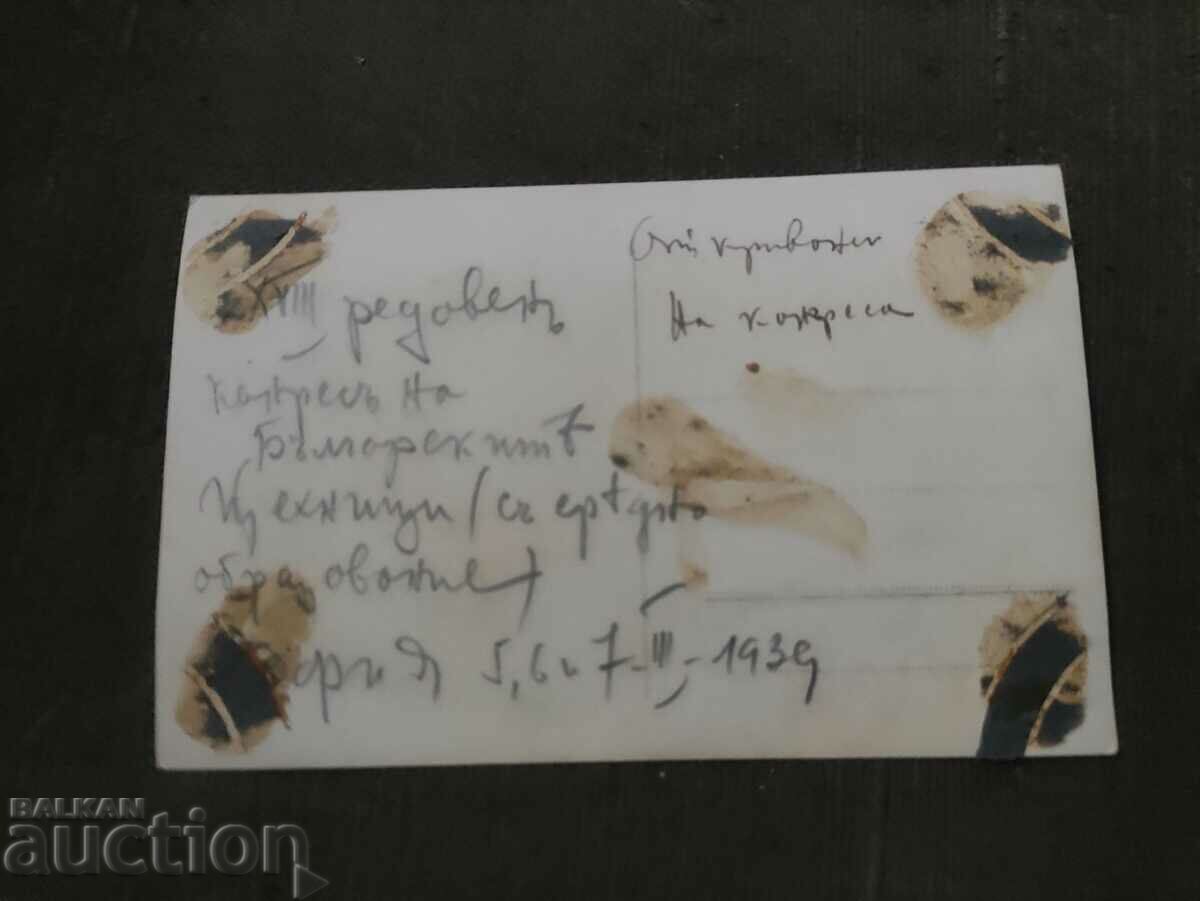 XVIII редовенъ
конгресъ на
Българскитѣ
Техници (съ срѣдно
образование)
София 5, 6 и 7-III-1939
Откриване
На конгреса
BALKAN
auction